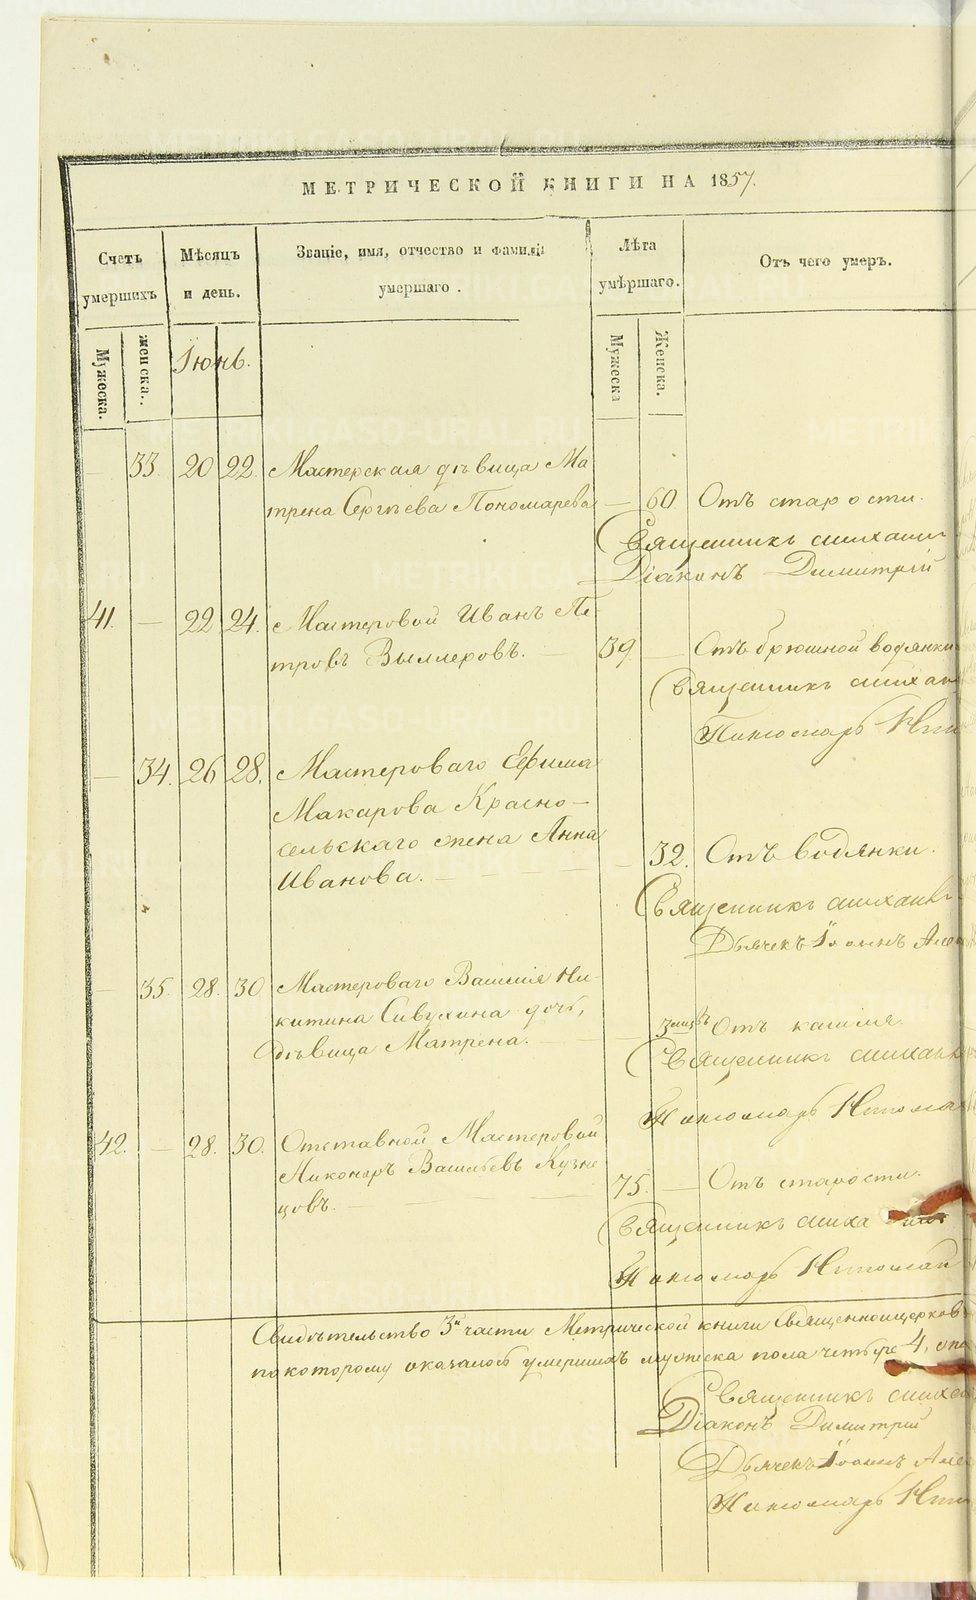 МЕТРИЧЕСКОЙ КНИГИ НА 1857.
Счетъ умершихъ
Мѣсяцъ и день.
Званіе, имя, отчество и фамилія умершаго.
Лѣта умѣршаго.
Отъ чего умеръ.
Мужеска.
женска.
Іюнь.
Мужеска
Женска.
33. 20 22. Мастерская дѣвица Ма
трена Сергѣева Пономарева
60 Отъ старости.
Священникъ
Діаконъ Димитрій
41. 22 24. Мастеровой Иванъ Пе-
тровъ
39 Отъ брюшной водянки
Священникъ
Пономарь
34. 26 28. Мастероваго Ефима
Макарова Красно-
сельскаго жена Анна
Иванова.
32. Отъ водянки.
Священникъ
Дьячекъ Іоаннъ
35. 28. 30 Мастероваго Василія Ни-
китина Сивухина дочь,
дѣвица Матрена.
Отъ кашля.
Священникъ
Пономарь
42. 28. 30. Отставной Мастеровой
Никоноръ Васильевъ Кузне
цовъ.
75. Отъ старости.
Священникъ
Пономарь
Свидѣтельство 3й части Метрической книги
по которому оказалось умершихъ мужеска пола четыре 4,
Священникъ
Діаконъ Димитрій
Дьячекъ Іоаннъ
Пономарь
METRIKI.GASO-URAL.RU